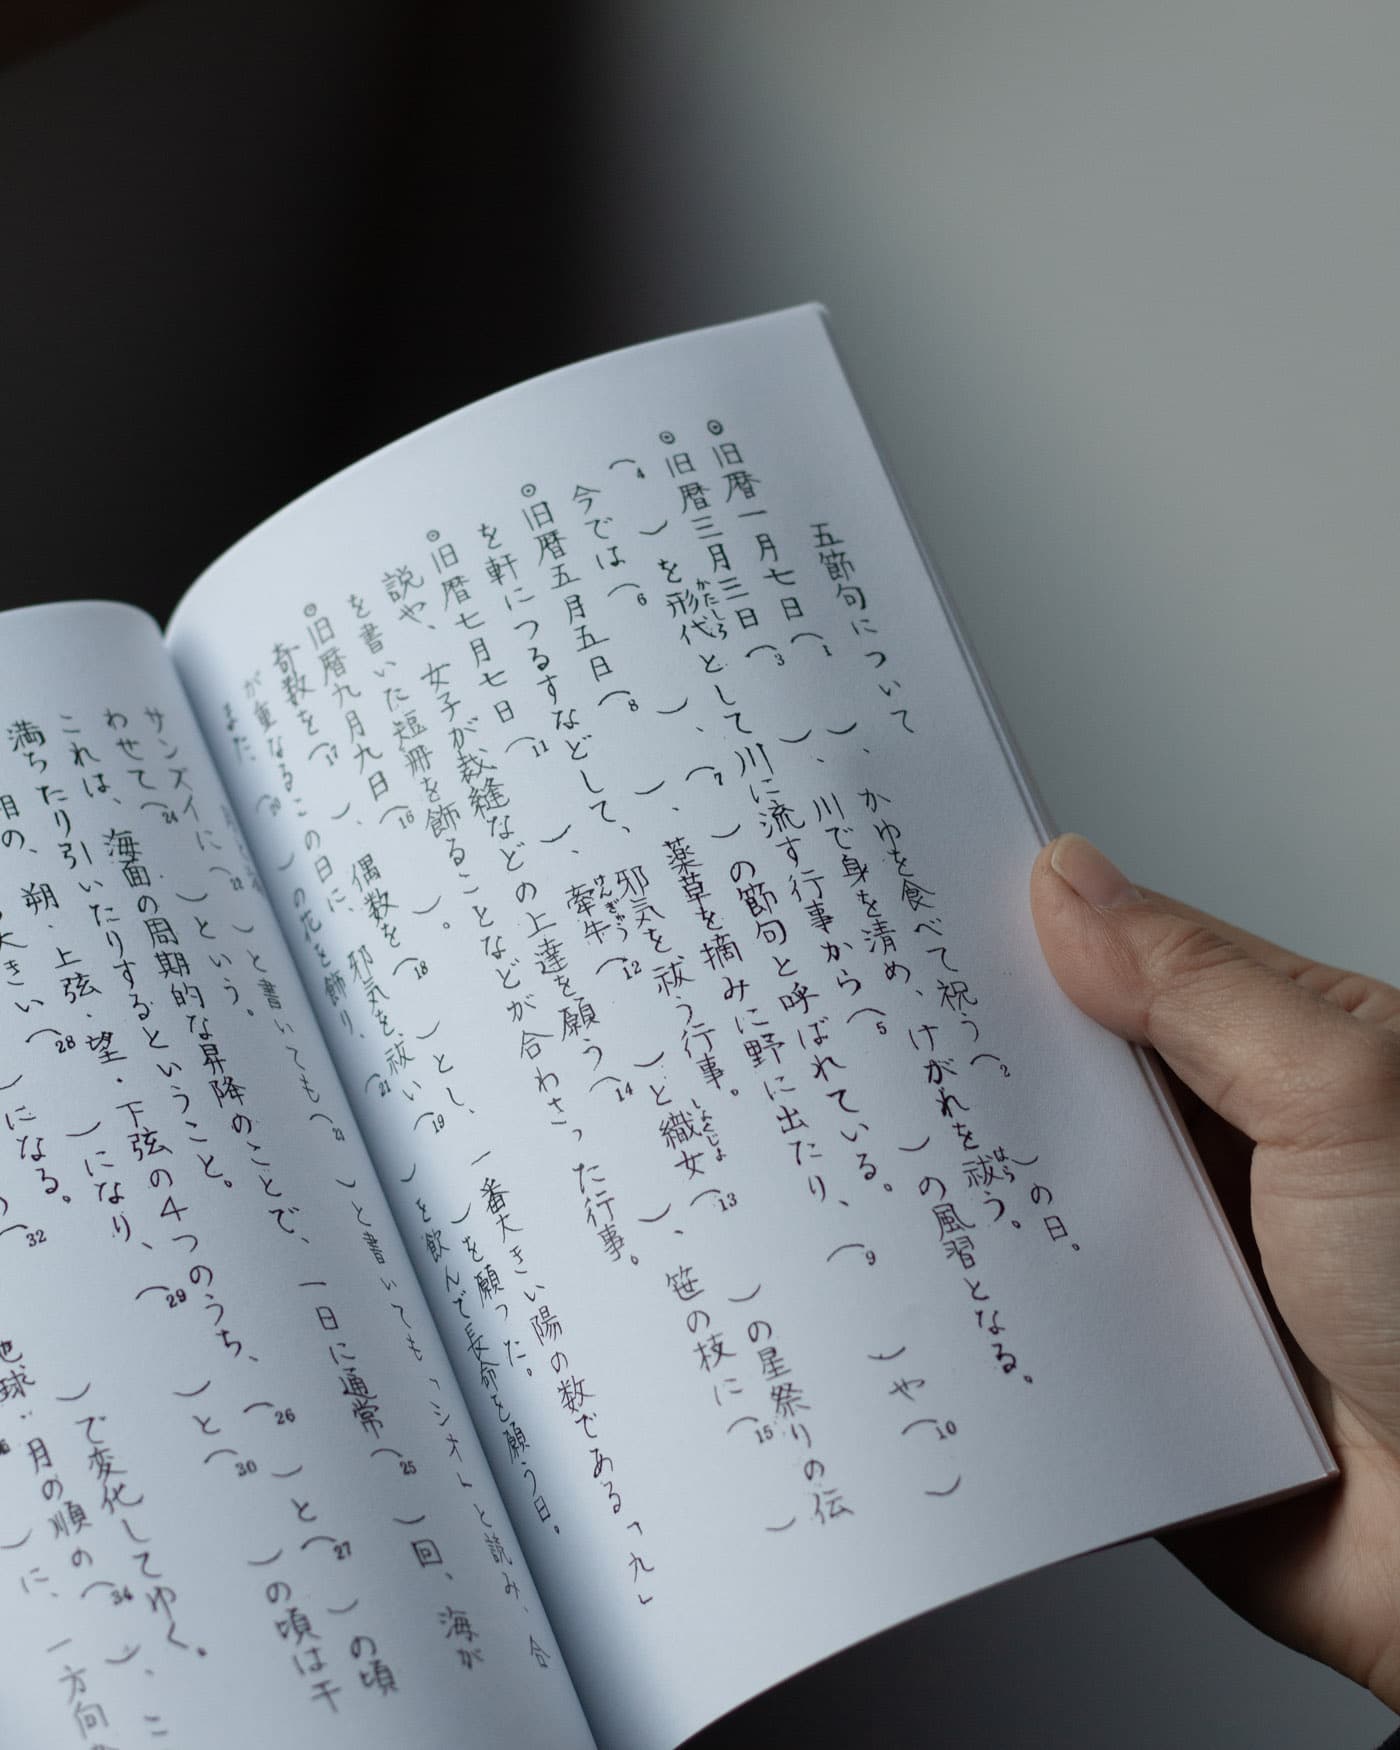 五節句について
◉旧暦一月七日（1　）、かゆを食べて祝う（2　）の日。
◉旧暦三月三日（3　）、川で身を清め、けがれを祓（はら）う。
（4　）を形代（かたしろ）として川に流す行事から（5　）の風習となる。
今では（6　）、（7　）の節句と呼ばれている。
◉旧暦五月五日（8　）、薬草を摘みに野に出たり、（9　）や（10　）
を軒につるすなどして、邪気を祓う行事。
◉旧暦七月七日（11　）、牽牛（けんぎゅう）（12　）と織女（しょくじょ）（13　）の星祭りの伝
説や、女子が裁縫などの上達を願う（14　）、笹の枝に（15　）
を書いた短冊を飾ることなどが合わさった行事。
◉旧暦九月九日（16　）。
奇数を（17　）、偶数を（18　）とし、一番大きい陽の数である「九」
が重なるこの日に、邪気を祓い（19　）を願った。
また、（20　）の花を飾り、（21　）を飲んで長命を願う日。
サンズイに（22　）と書いても（　）と書いても「シオ」と読み、合
わせて（24　）という。
これは、海面の周期的な昇降のことで、一日に通常（25　）回、海が
満ちたり引いたりするということ。
の、朔・上弦・望・下弦の4つのうち、（26　）と（27　）の頃
大きい（28　）になり、（29　）と（30　）の頃は干
になる。
（32　）で変化してゆく。
地球
月の順の（34　）、こ
に、一方向